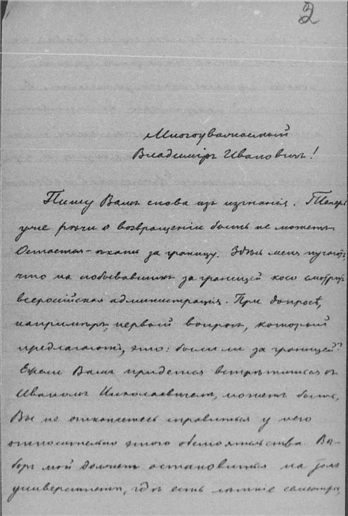 2
Многоуважаемый
Владиміръ Ивановичъ!
Пишу Вамъ снова изъ изгнанія. Теперь
уже рѣчи о возвращеніи быть не можетъ.
Остается – ѣхать за границу. Здѣсь меня пугаютъ,
что на побывавшихъ за границей косо смотритъ
всероссійская администрація. При допросѣ,
напримѣръ, первый вопросъ, который
предлагаютъ, это: были ли за границей?
Если Вамъ придется встрѣтиться съ
Иваномъ Николаевичемъ, можетъ быть,
Вы не откажетесь справиться у него
относительно этого обстоятельства. Вы-
боръ мой долженъ остановиться на
университетѣ, гдѣ есть лѣтніе семестры,